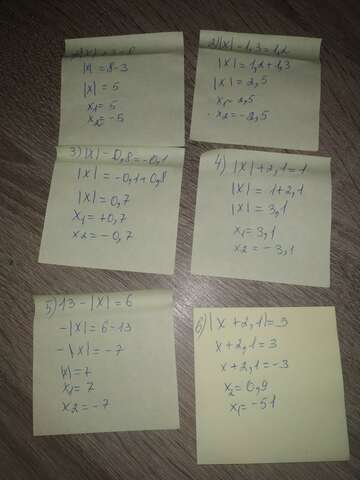 |x| = 8-3
|x| = 5
x₁ = 5
x₂ = -5
2) |x| - 1,3 = 1,2
|x| = 1,2 + 1,3
|x| = 2,5
x₁ = 2,5
x₂ = -2,5
3) |x| - 0,8 = -0,1
|x| = -0,1 + 0,8
|x| = 0,7
x₁ = +0,7
x₂ = -0,7
4) |x| + 2,1 = 1
|x| = 1 + 2,1
|x| = 3,1
x₁ = 3,1
x₂ = -3,1
5) 13 - |x| = 6
-|x| = 6-13
-|x| = -7
|x| = 7
x₁ = 7
x₂ = -7
6) |x + 2,1| = 3
x + 2,1 = 3
x + 2,1 = -3
x₂ = 0,9
x₁ = -51